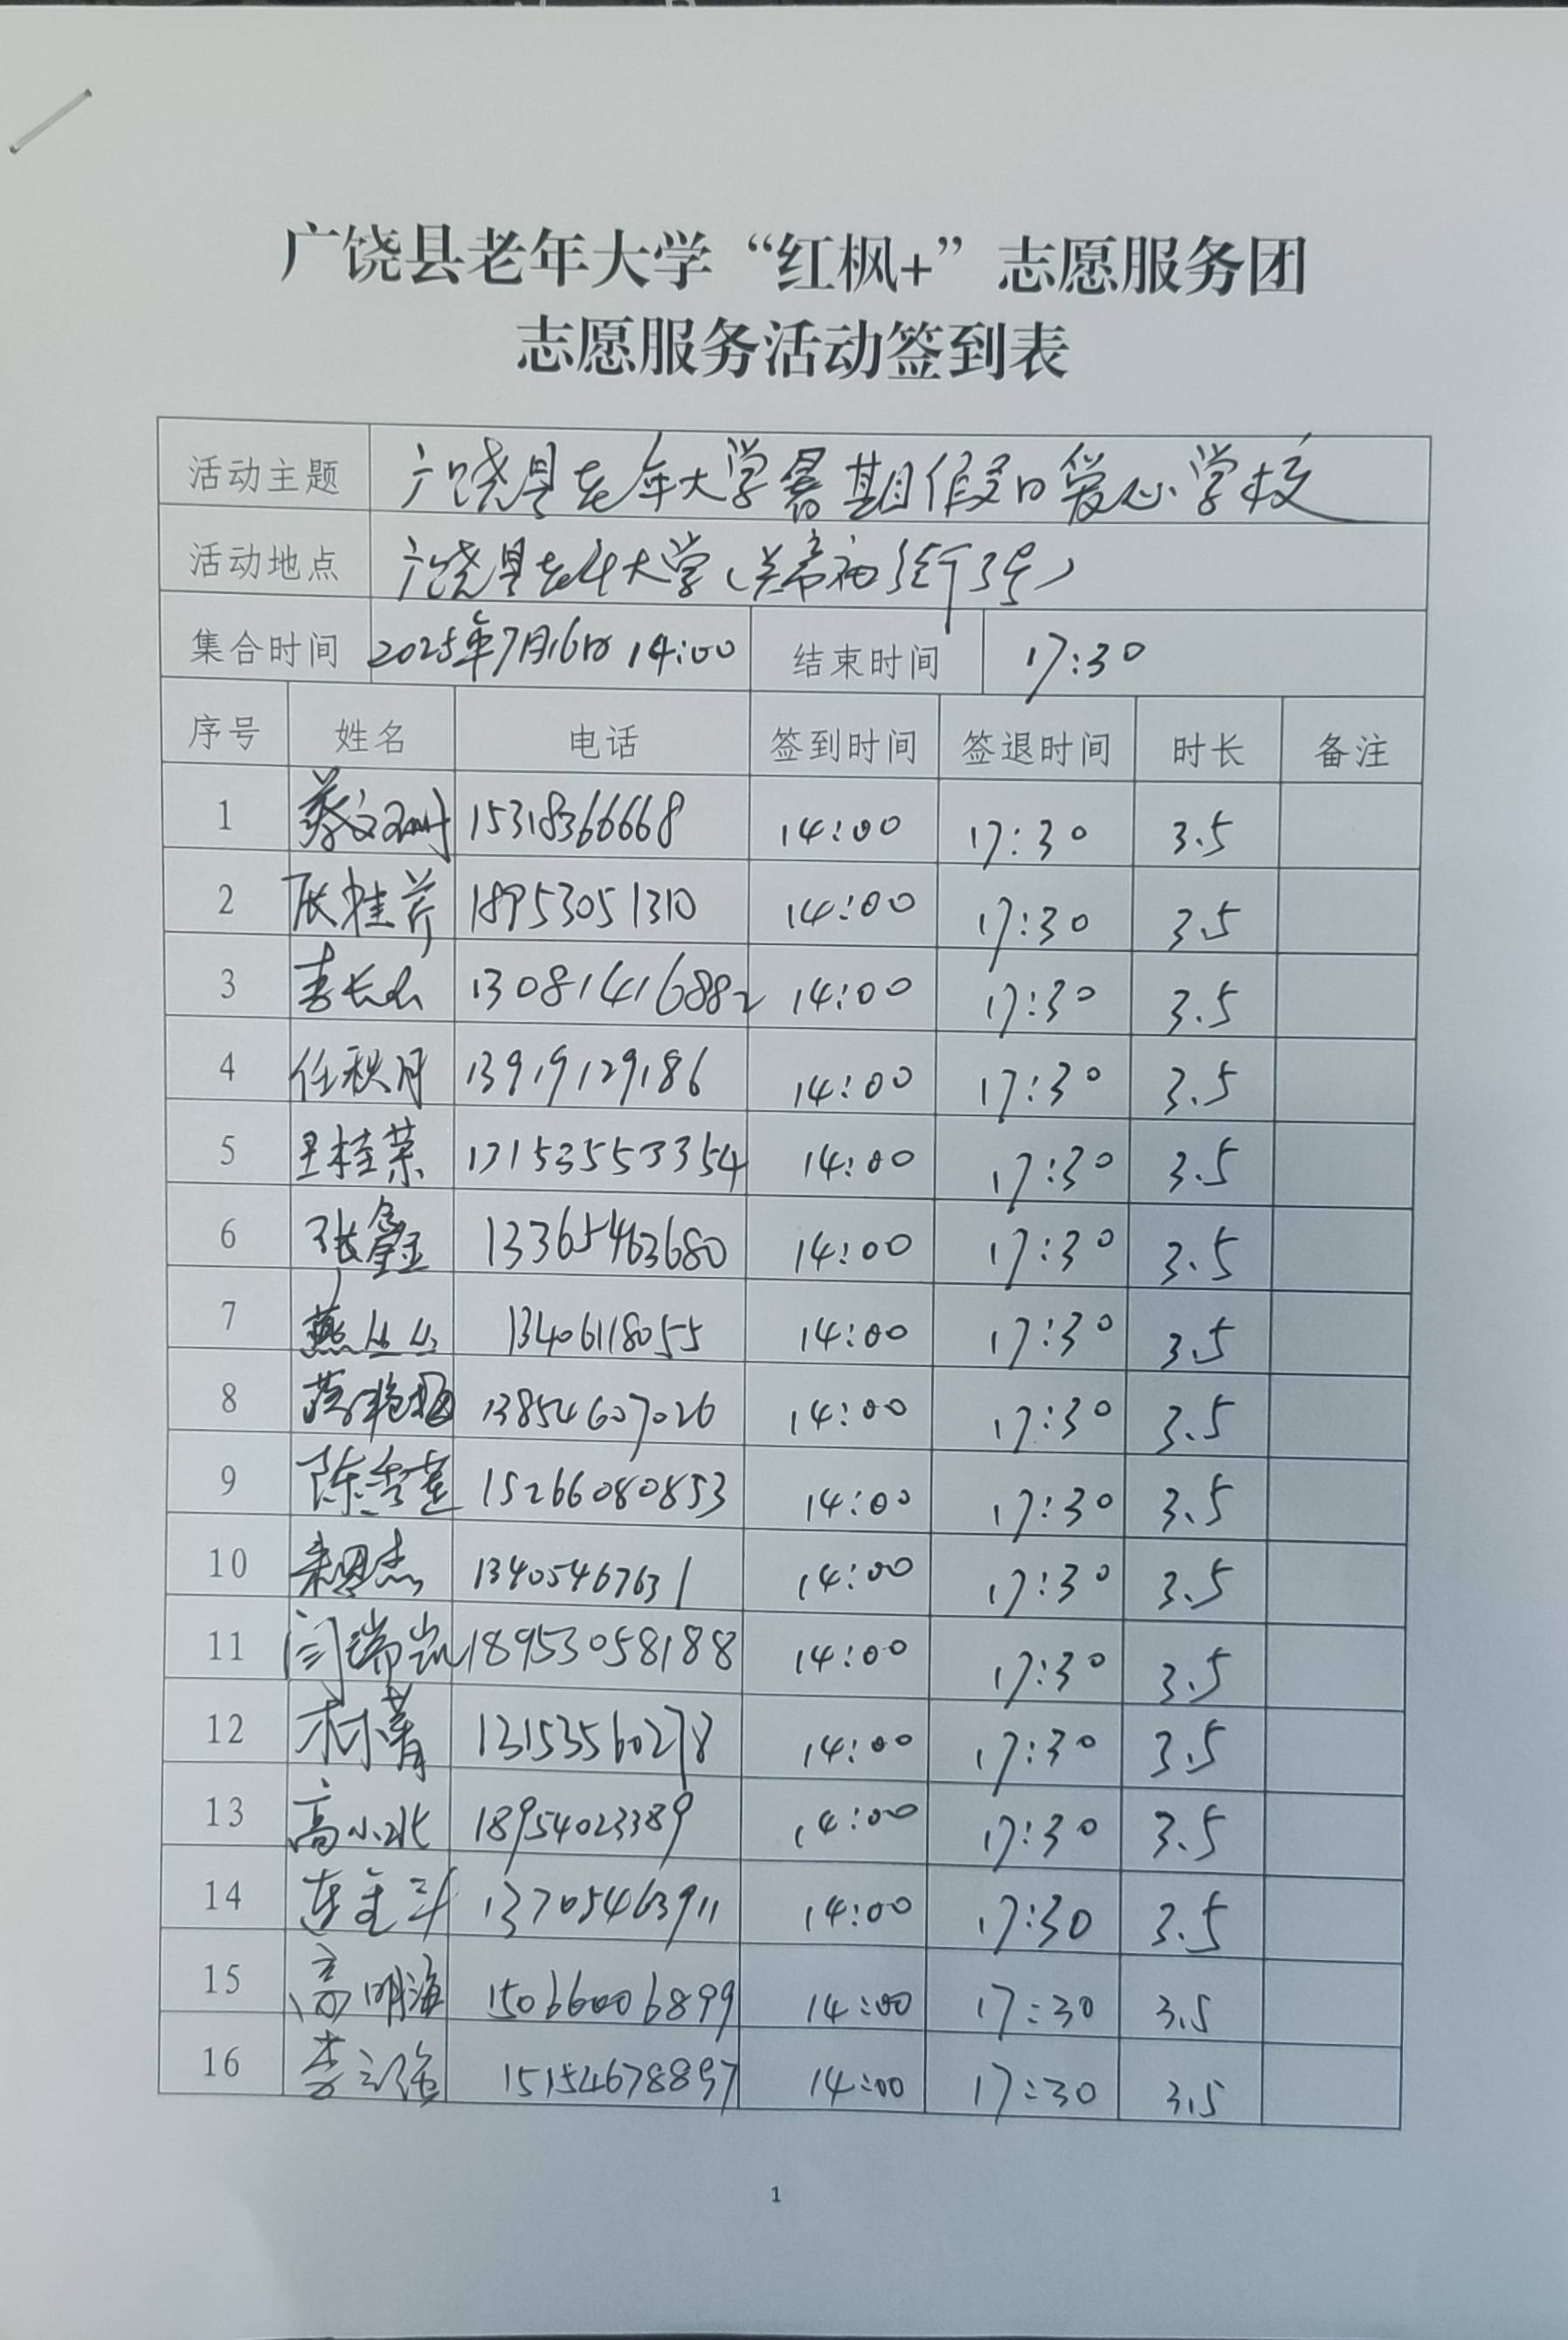 广饶县老年大学“红枫+”志愿服务团
志愿服务活动签到表
活动主题 广饶县老年大学暑期假日爱心学校
活动地点 广饶县老年大学（关帝初街3号）
集合时间 2025年7月16日 14:00 结束时间 17:30
序号 姓名 电话 签到时间 签退时间 时长 备注
1 15318366668 14:00 17:30 3.5
2 张桂芹 18953051310 14:00 17:30 3.5
3 李长么 13081416882 14:00 17:30 3.5
4 任秋月 13919129186 14:00 17:30 3.5
5 王桂荣 14:00 17:30 3.5
6 张鑫 13365463680 14:00 17:30 3.5
7 燕丛丛 13406118055 14:00 17:30 3.5
8 蒋艳梅 13854607026 14:00 17:30 3.5
9 陈秀莲 15266080853 14:00 17:30 3.5
10 13405467631 14:00 17:30 3.5
11 闫瑞凯 18953058188 14:00 17:30 3.5
12 林菁 13153560278 14:00 17:30 3.5
13 高小冰 18954023389 14:00 17:30 3.5
14 13705463911 14:00 17:30 3.5
15 高明海 15066006899 14:00 17:30 3.5
16 李立强 15154678897 14:00 17:30 3.5
1